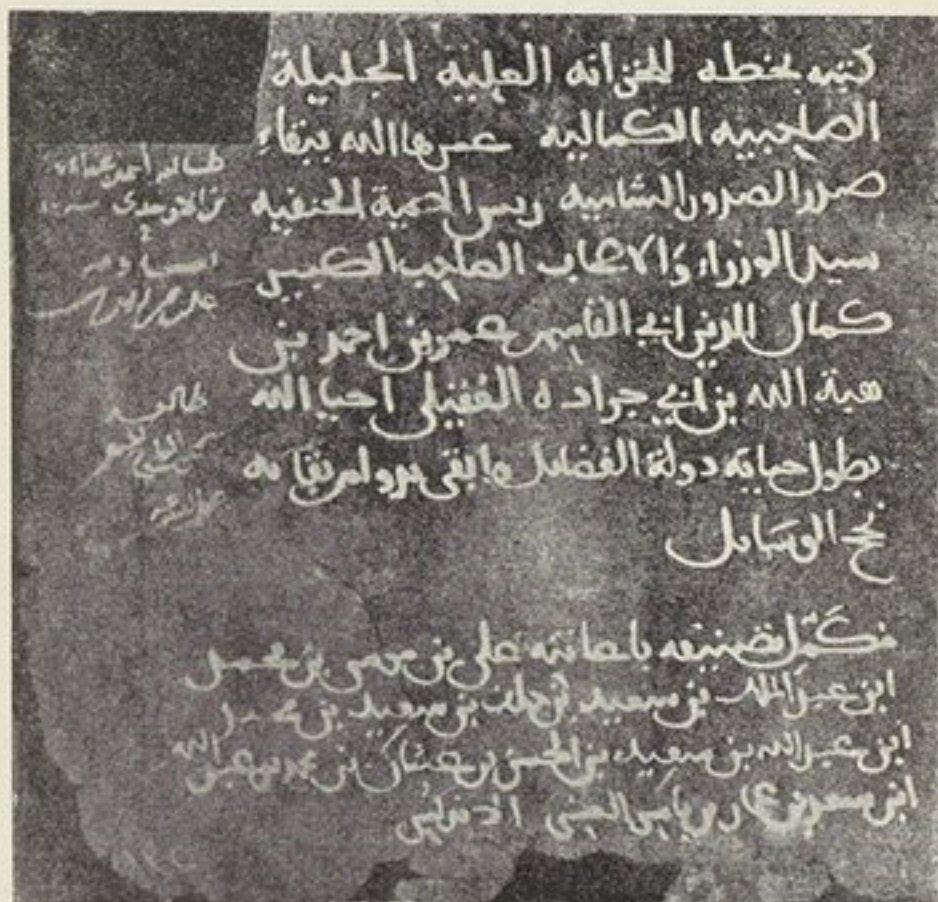 كتبه بخطه للخزانه العليه الجليلة
الصاحبيه الكماليه عمرها الله ببقاء
صدر الصدور الشاميه ريس الايمة الحنفيه
سيد الوزراء والاصحاب الصاحب الكبير
كمال الدين ابي القاسم عمر بن احمد بن
هبة الله بن ابي جرادة العقيلي احيا الله
بطول حياته دولة الفضايل وابقى بدوام بقايه
نجح الوسايل
مكمّل تصنيفه باعانته علي بن موسى بن محمد
ابن عبد الملك بن سعيد بن خلف بن سعيد بن محمد
ابن عبد الله بن سعيد بن الحسن بن عثمان بن محمد بن عبد الله
ابن سعد بن عمار بن ياسر العنسي الاندلسي